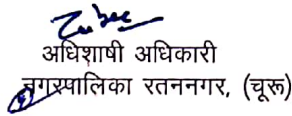 अधिशाषी अधिकारी
नगरपालिका रतननगर, (चूरू)